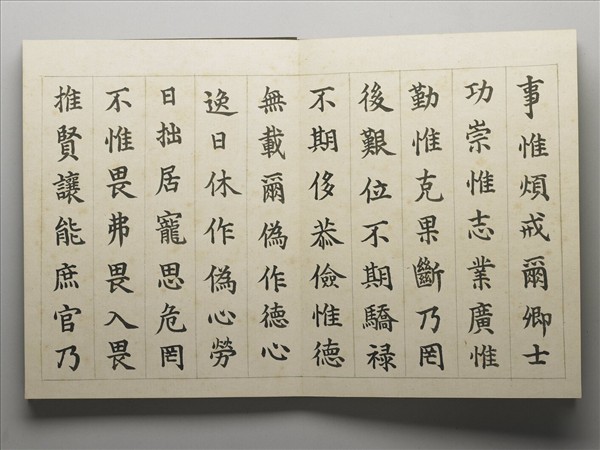 事惟煩戒爾卿士
功崇惟志業廣惟
勤惟克果斷乃罔
後艱位不期驕祿
不期侈恭儉惟德
無載爾偽作德心
逸日休作偽心勞
日拙居寵思危罔
不惟畏弗畏入畏
推賢讓能庶官乃